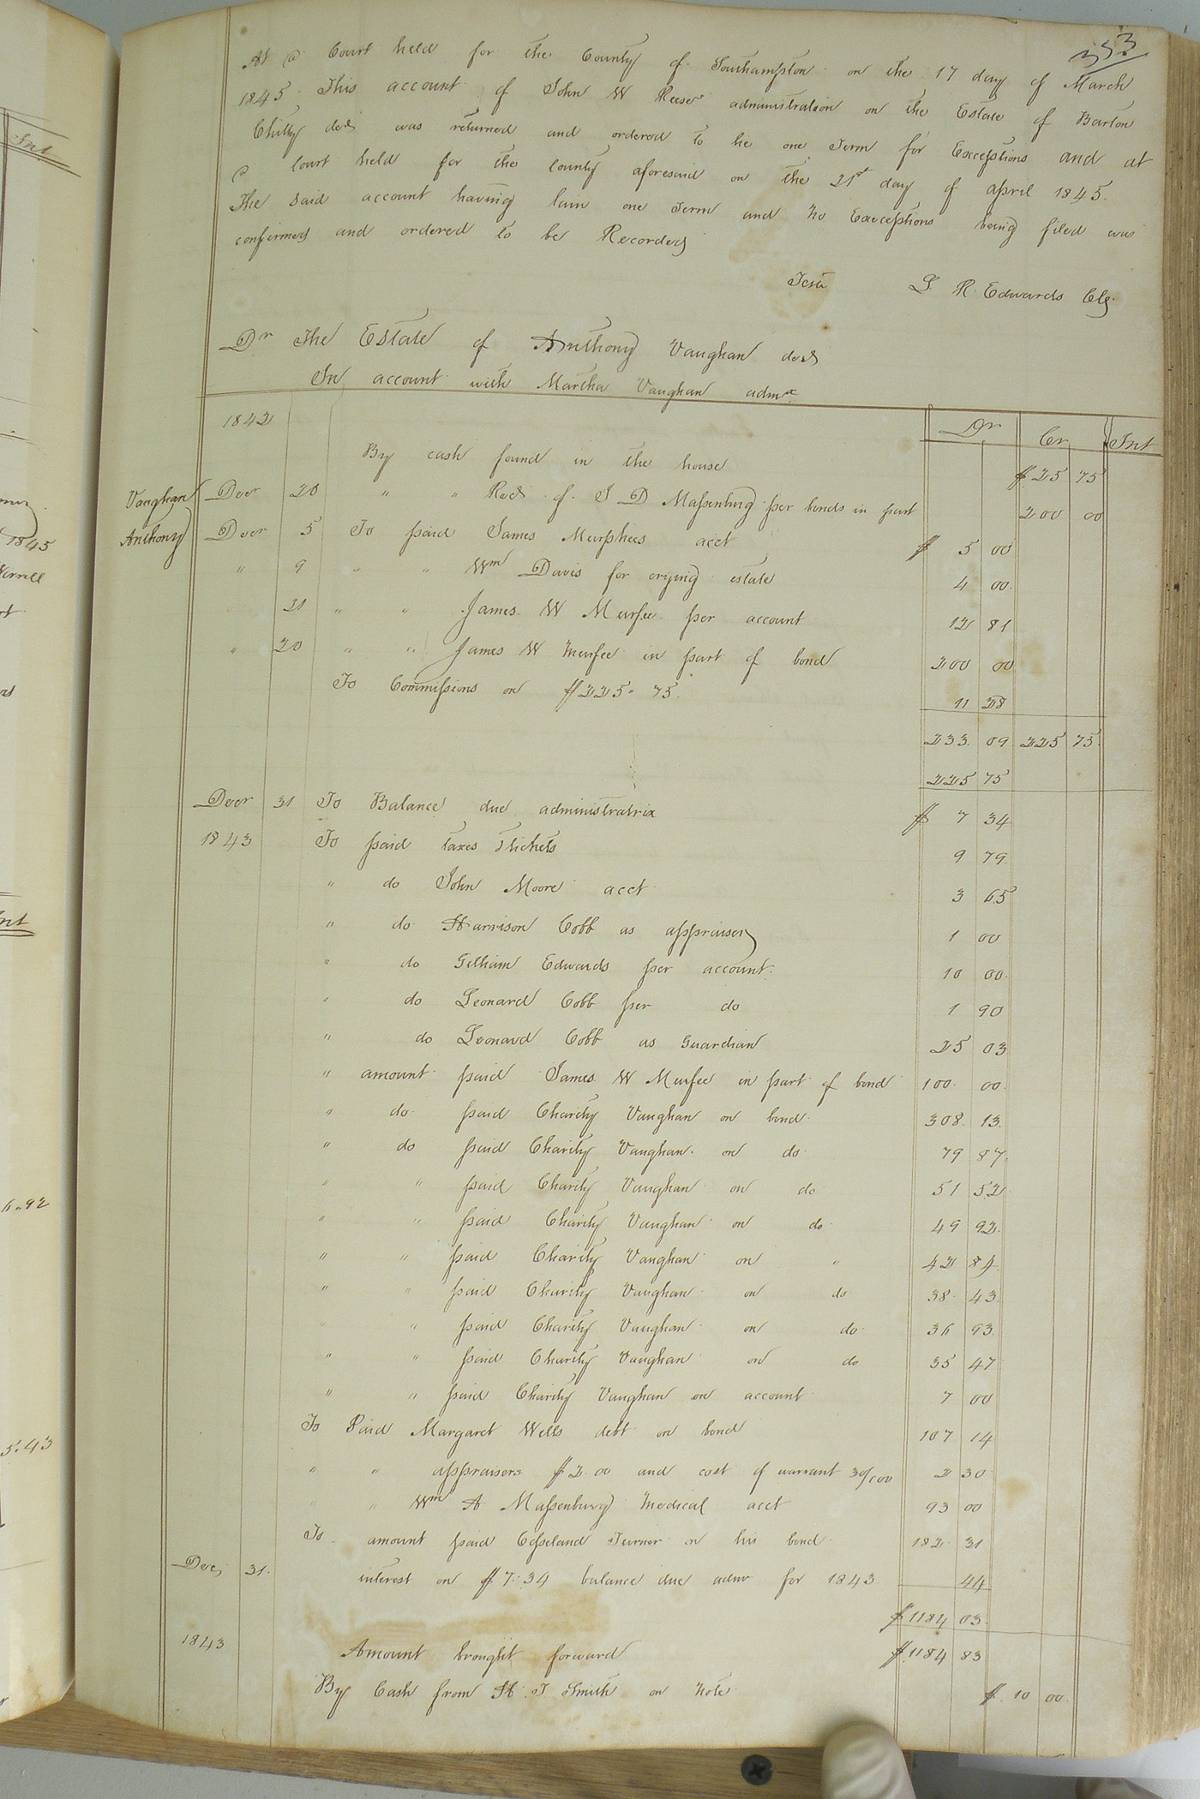 353
At a Court held for the County of Southampton on the 17 day of March
1845 This account of John W Reese administration on the Estate of Barton
Chitty decd was returned and ordered to lie one Term for Exceptions and at
a Court held for the County aforesaid on the 21st day of april 1845.
The said account having lain one Term and no Exceptions being filed was
confirmed and ordered to be Recorded
Teste L R Edwards Clk
Dr The Estate of Anthony Vaughan decd
In account with Martha Vaughan admx
1842 Dr Cr Int
By cash found in the house $25 75
Vaughan
Anthony
Decr 20 " " Recd of S D Massenburg per bonds in part 200 00
Decr 5 To paid James Murphees acct $ 5 00
" 9 " " Wm Davis for crying estate 4 00
21 " " James W Murfee per account 12 81
" 20 " " James W Murfee in part of bond 200 00
To Commissions on $225.75 11 28
233 09 225 75
225 75
Decr 31 To Balance due administratrix $ 7 34
1843 To paid Taxes Tickets 9 79
" do John Moore acct 3 65
" do Harrison Cobb as appraiser 1 00
" do Gilliam Edwards per account 10 00
" do Leonard Cobb per do 1 90
" do Leonard Cobb as Guardian 25 03
" amount paid James W Murfee in part of bond 100 00
" do paid Charity Vaughan on bond 308 13
" do paid Charity Vaughan on do 79 87
" " paid Charity Vaughan on do 51 52
" " paid Charity Vaughan on do 49 92
" " paid Charity Vaughan on " 42 84
" " paid Charity Vaughan on do 38 43
" " paid Charity Vaughan on do 36 93
" " paid Charity Vaughan on do 35 47
" " paid Charity Vaughan on account 7 00
To Paid Margaret Wells debt on bond 107 14
" " appraisers $2.00 and cost of warrant 30/100 2 30
" " Wm A Massenburg Medical acct 93 00
To amount paid Copeland Turner on his bond 182 31
Dec, 31. interest on $7.34 balance due admr for 1843 44
$1184 03
1843 Amount brought forward $1184 83
By Cash from H T Smith on Note $ 10 00
Int
1845
Int
6.92
5.43